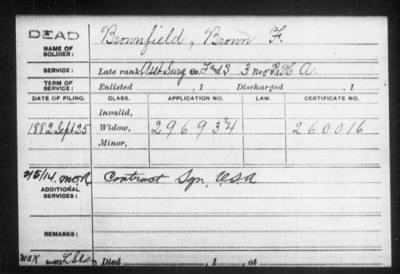 DEAD
NAME OF SOLDIER:
Brownfield, Brown F.
SERVICE:
Late rank, Asst Surg Co. F and S 3 Reg't Pa H A.
TERM OF SERVICE:
Enlisted , 1 Discharged , 1
DATE OF FILING. CLASS. APPLICATION NO. LAW. CERTIFICATE NO.
Invalid,
1882 Sept 25 Widow, 296934 260016
Minor,
ADDITIONAL SERVICES:
Contract Sgn, USA
REMARKS:
Died , 1 , at